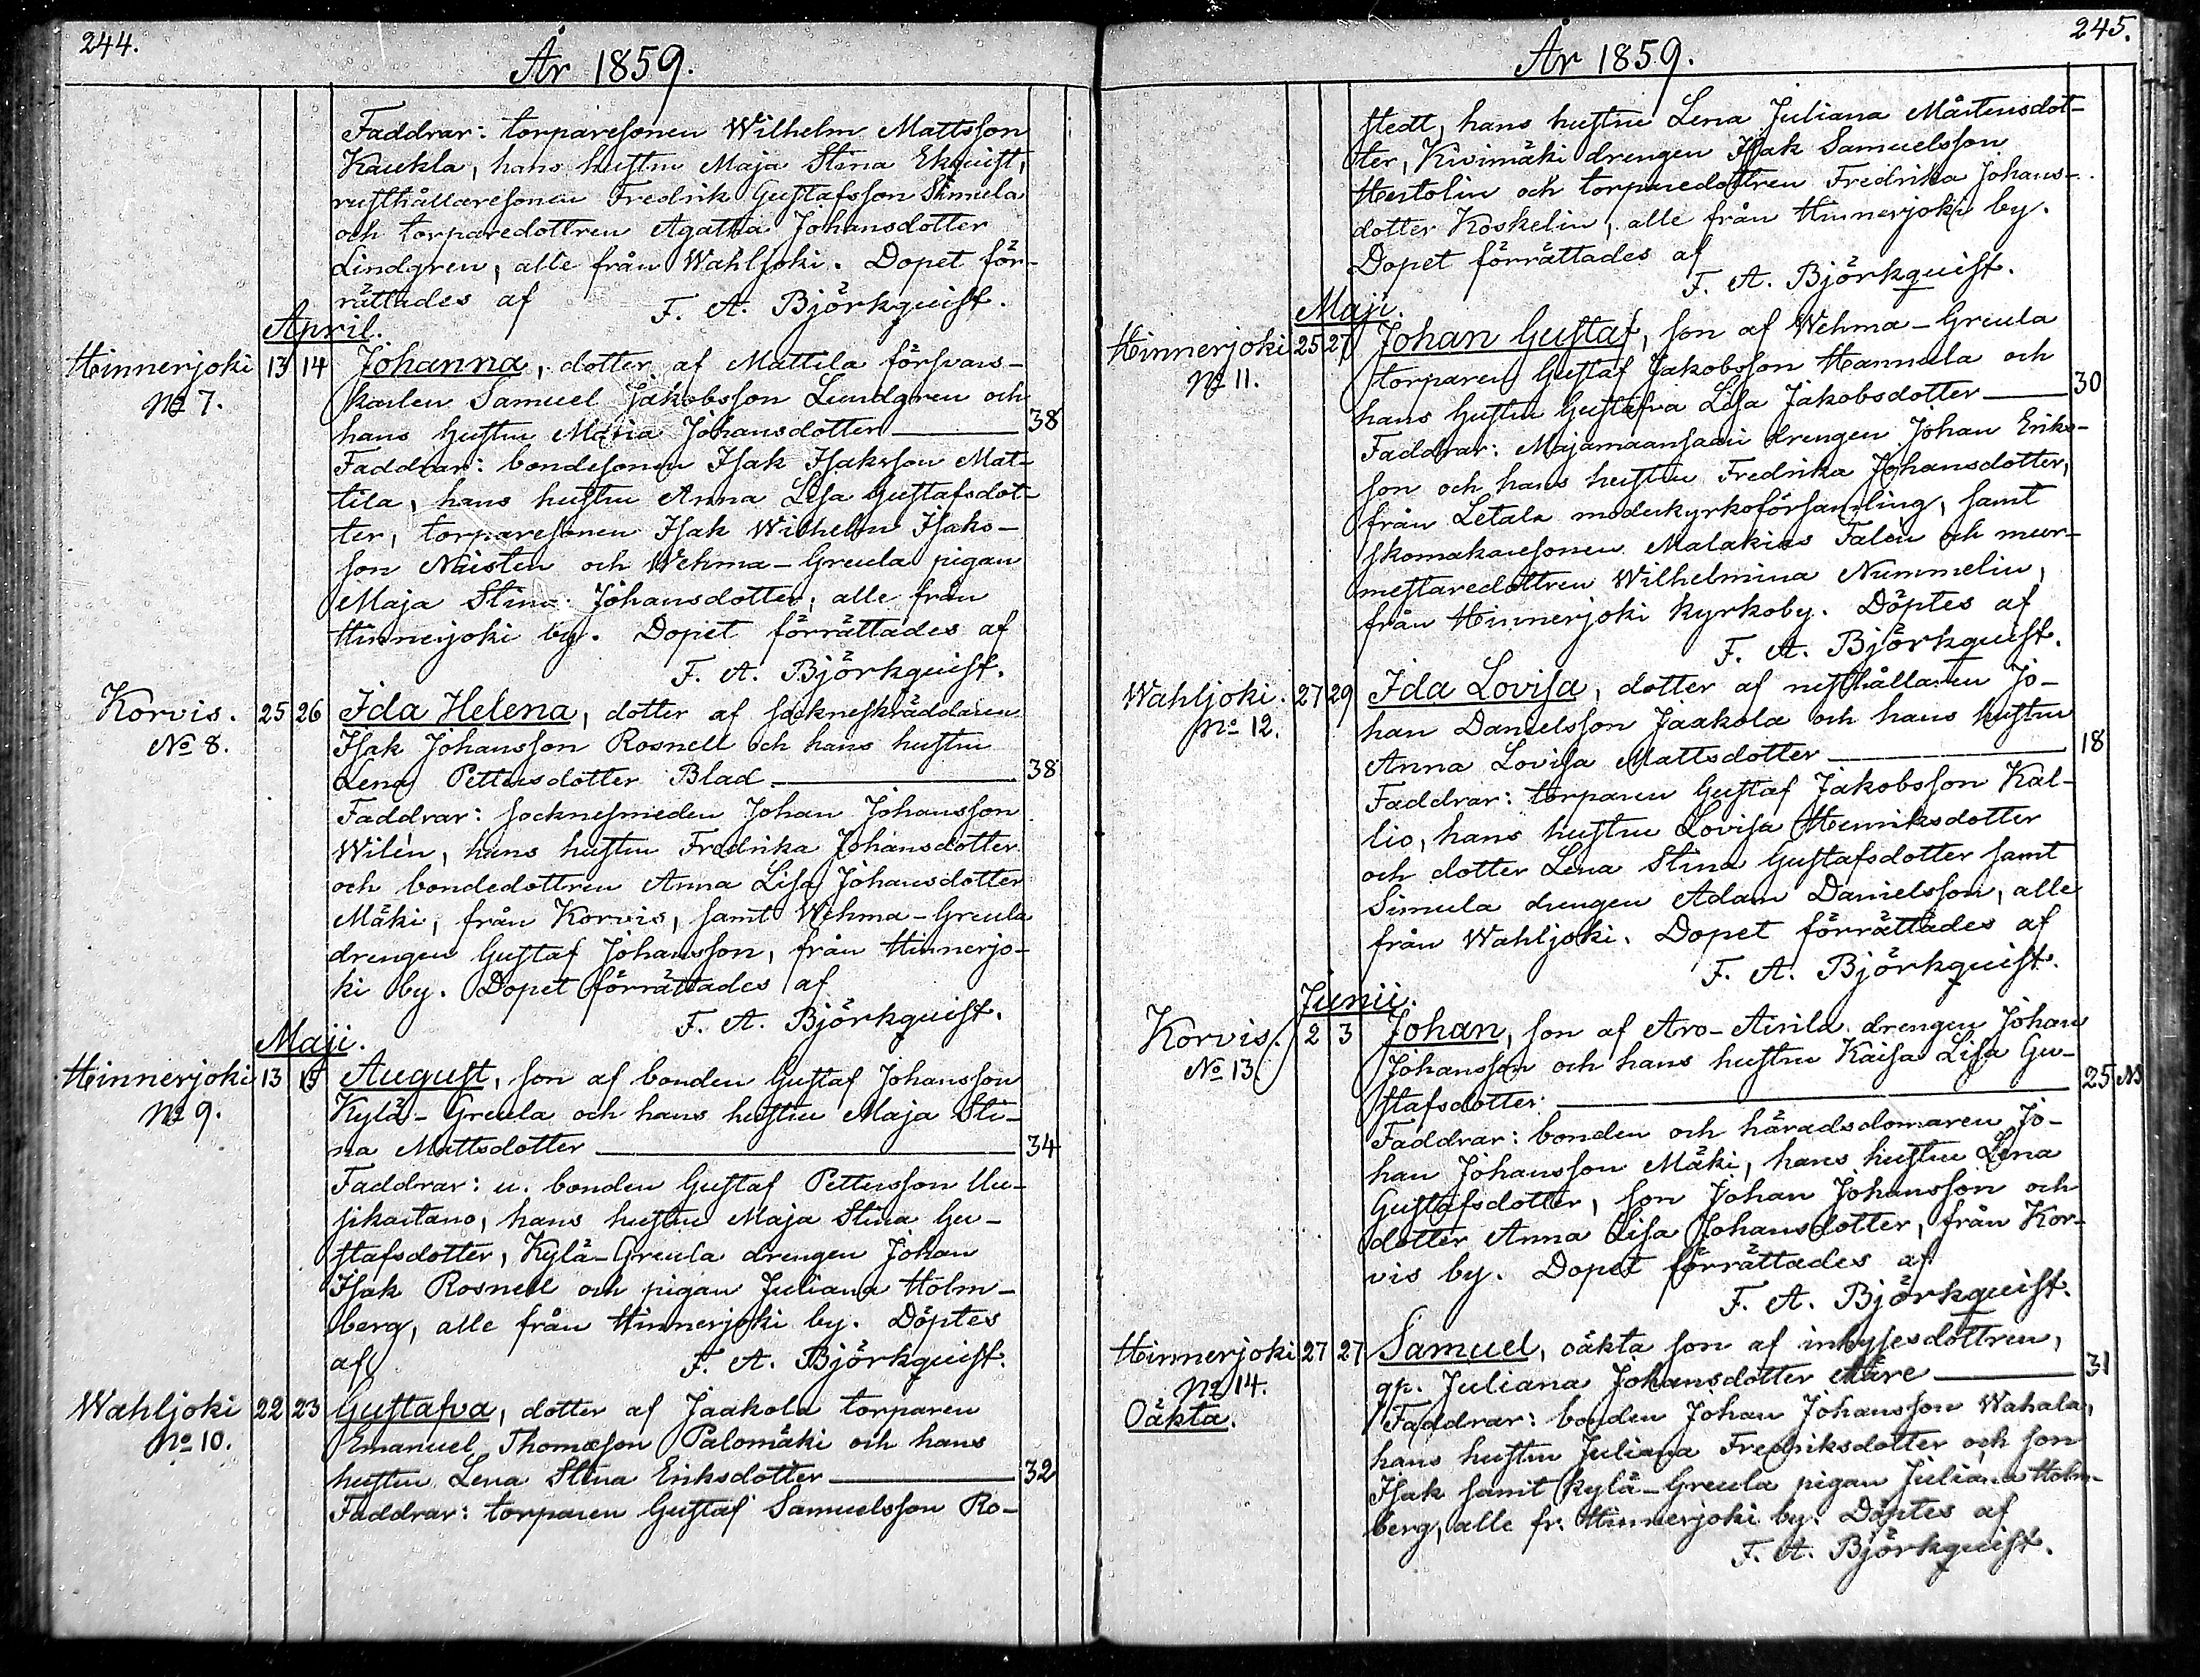 244.
År 1859.
Faddrar: torparesonen Wilhelm Mattsson
Kaukla, hans hustru Maja Stina Ekquist,
rusthållaresonen Fredrik Gustafsson Simula
och torparedottren Agatha Johansdotter
Lindgren, alle från Wahljoki. Dopet för-
rättades af F. A. Björkquist.
April.
Hinnerjoki 13 14 Johanna, dotter af Mattila försvars-
No 7. karlen Samuel Jakobsson Lundgren och
hans hustru Maria Johansdotter 38
Faddrar: bondesonen Isak Isaksson Mat-
tila, hans hustru Anna Lisa Gustafsdot-
ter, torparesonen Isak Wilhelm Isaks-
son Neisten och Wehma-Greula pigan
Maja Stina Johansdotter, alle från
Hinnerjoki by. Dopet förrättades af
F. A. Björkquist.
Korvis. 25 26 Ida Helena, dotter af sockneskräddaren
No 8. Isak Johansson Rosnell och hans hustru
Lena Pettersdotter Blad 38
Faddrar: socknesmeden Johan Johansson
Wilén, hans hustru Fredrika Johansdotter
och bondedottren Anna Lisa Johansdotter
Mäki, från Korvis, samt Wehma-Greula
drengen Gustaf Johansson, från Hinnerjo-
ki by. Dopet förrättades af
F. A. Björkquist.
Maji.
Hinnerjoki 13 15 August, son af bonden Gustaf Johansson
No 9. Kylä-Greula och hans hustru Maja Sti-
na Mattsdotter 34
Faddrar: u. bonden Gustaf Pettersson Uu-
sikartano, hans hustru Maja Stina Gu-
stafsdotter, Kylä-Greula drengen Johan
Isak Rosnell och pigan Juliana Holm-
berg, alle från Hinnerjoki by. Döptes
af F. A. Björkquist.
Wahljoki 22 23 Gustafva, dotter af Jaakola torparen
No 10. Emanuel Thomasson Palomäki och hans
hustru Lena Stina Eriksdotter 32
Faddrar: torparen Gustaf Samuelsson Ro-
245.
År 1859.
stedt, hans hustru Lena Juliana Mårtensdot-
ter, Kivimäki drengen Isak Samuelsson
Hertolin och torparedottren Fredrika Johans-
dotter Koskelin, alle från Hinnerjoki by.
Dopet förrättades af
F. A. Björkquist.
Maji.
Hinnerjoki 25 27 Johan Gustaf, son af Wehma-Greula
No 11. torparen Gustaf Jakobsson Hannula och
hans hustru Gustafva Lisa Jakobsdotter 30
Faddrar: Majamaansaari drengen Johan Eriks-
son och hans hustru Fredrika Johansdotter,
från Letala moderkyrkoförsamling, samt
skomakaresonen Malakias Falén och mur-
mestaredottren Wilhelmina Nummelin,
från Hinnerjoki kyrkoby. Döptes af
F. A. Björkquist.
Wahljoki. 27 29 Ida Lovisa, dotter af rusthållaren Jo-
No 12. han Danielsson Jaakola och hans hustru
Anna Lovisa Mattsdotter 18
Faddrar: torparen Gustaf Jakobsson Kal-
lio, hans hustru Lovisa Henriksdotter
och dotter Lena Stina Gustafsdotter samt
Simula drengen Adam Danielsson, alle
från Wahljoki. Dopet förrättades af
F. A. Björkquist.
Junii.
Korvis. 2 3 Johan, son af Aro-Airila drengen Johan
No 13. Johansson och hans hustru Kaisa Lisa Gu-
stafsdotter 25
Faddrar: bonden och häradsdomaren Jo-
han Johansson Mäki, hans hustru Lena
Gustafsdotter, son Johan Johansson och
dotter Anna Lisa Johansdotter, från Kor-
vis by. Dopet förrättades af
F. A. Björkquist.
Hinnerjoki 27 27 Samuel, oäkta son af inhysesdottren,
No 14. qp. Juliana Johansdotter Märe 31
Oäkta. Faddrar: bonden Johan Johansson Wahala,
hans hustru Juliana Fredriksdotter och son
Isak samt Kylä-Greula pigan Juliana Holm-
berg, alle fr. Hinnerjoki by. Döptes af
F. A. Björkquist.